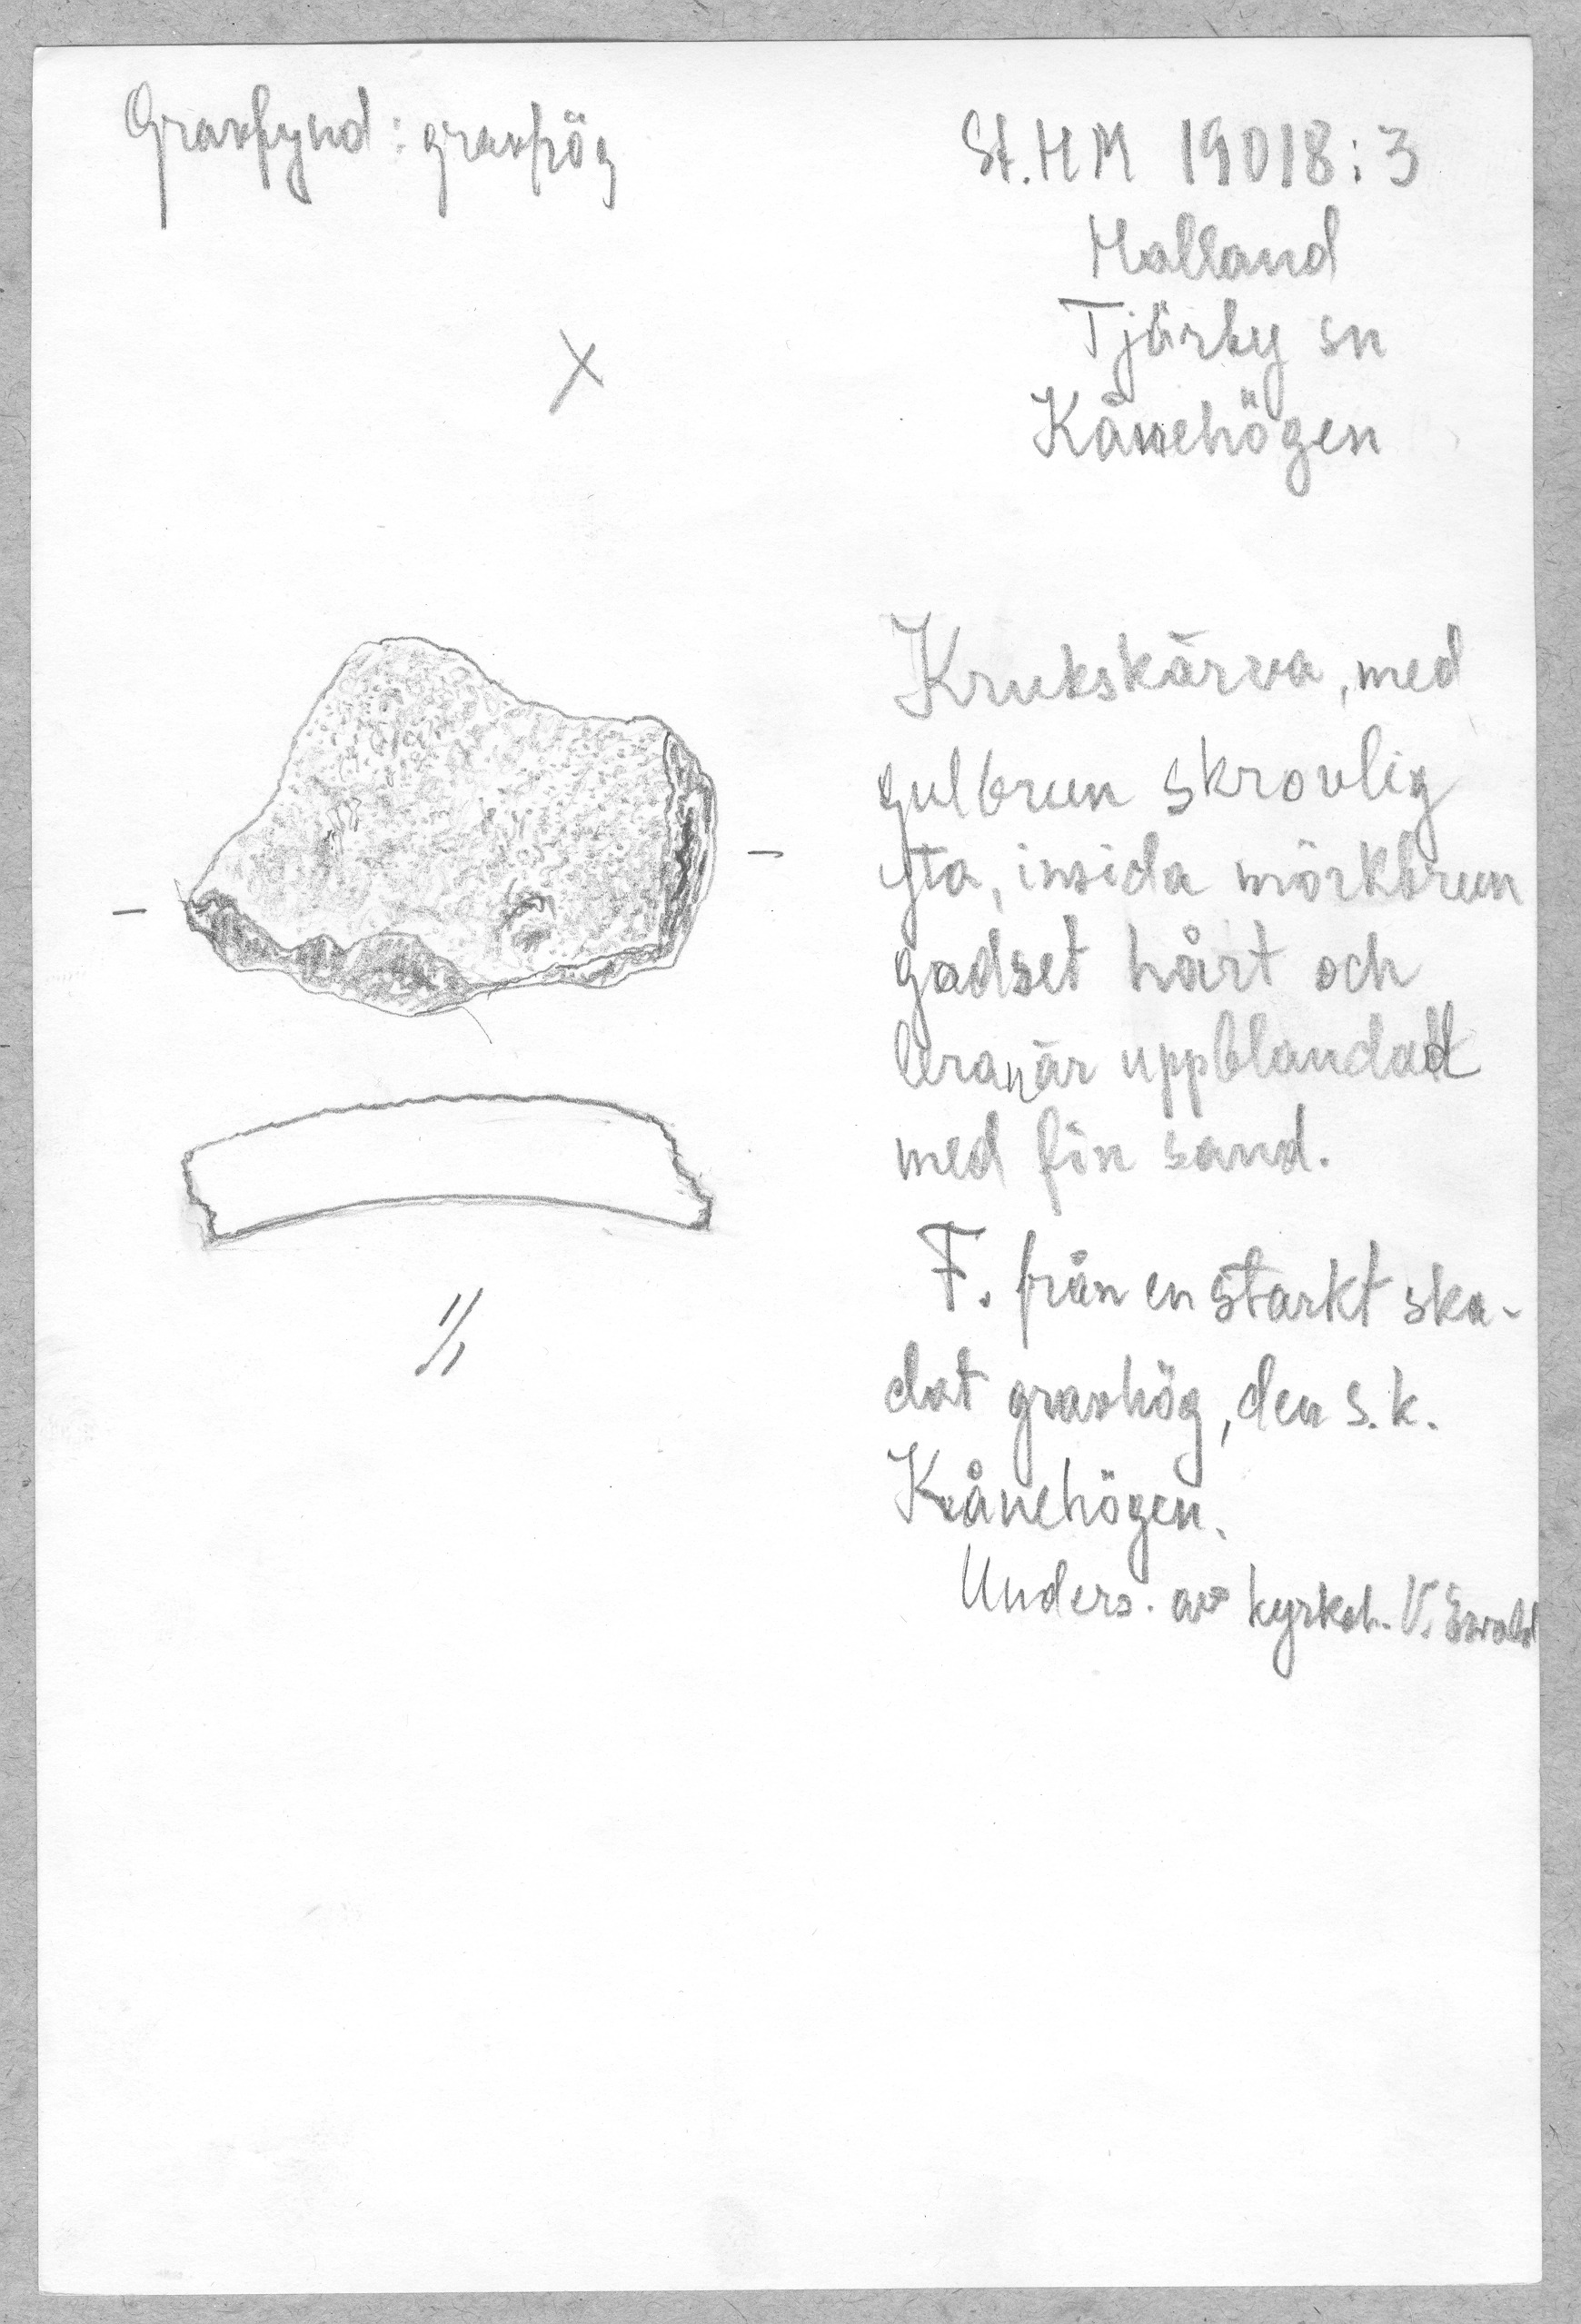 Gravfynd: gravhög
St.HM 19018:3
Halland
Tjärby sn
Kånehögen
X
Krukskärva, med
gulbrun skrovlig
yta, insida mörkbrun
godset hårt och
leran är uppblandad
med fin sand.
F. från en starkt ska-
dat gravhög, den s.k.
Kånehögen.
Unders. av kyrkoh. V. Ewald
1/1